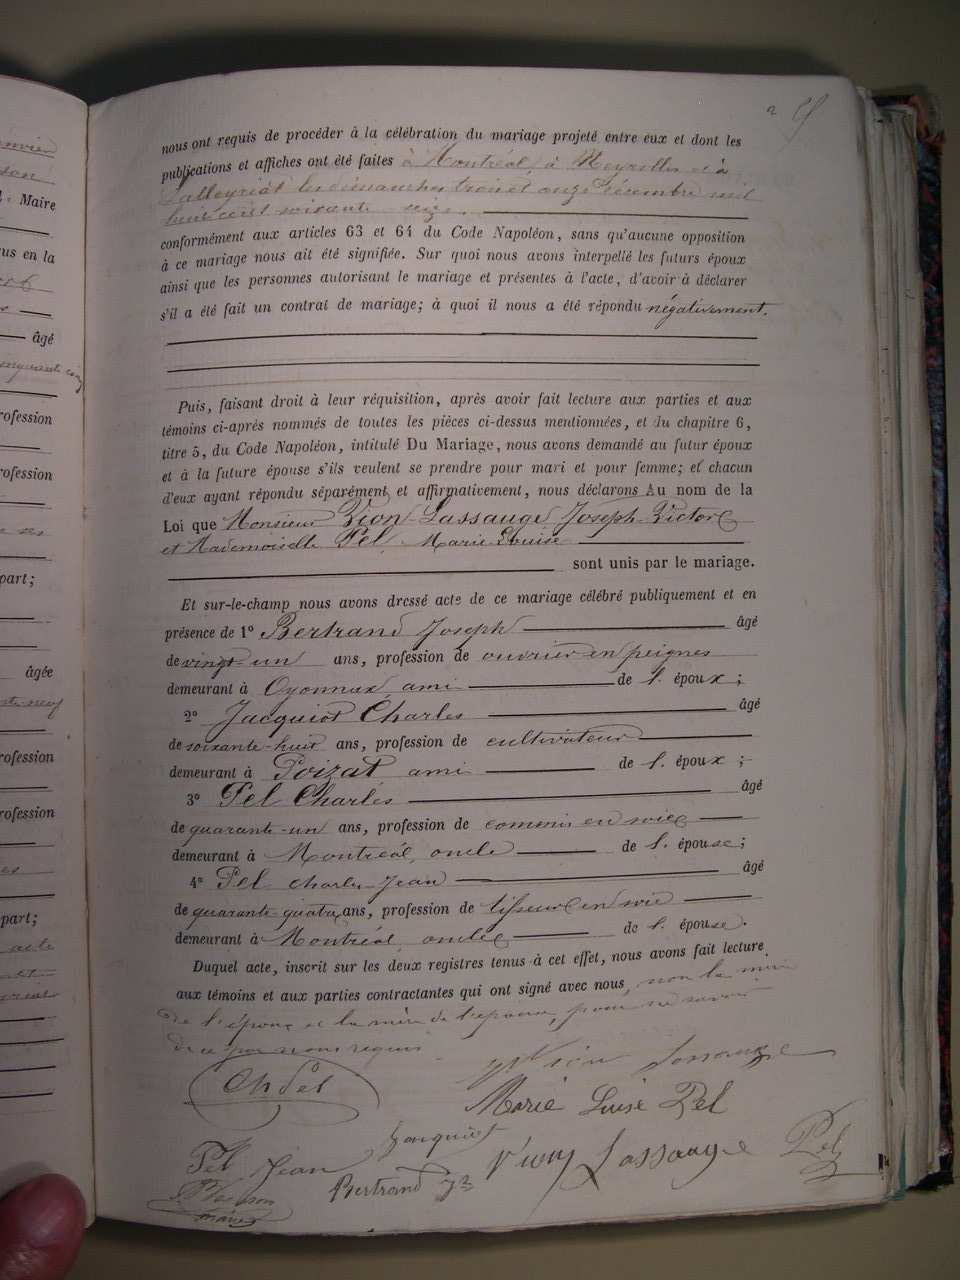 nvier
son
Maire
us en la
âgé
inquante cinq
rofession
rofession
part;
âgée
te-neuf
rofession
rofession
part;
acte
2
nous ont requis de procéder à la célébration du mariage projeté entre eux et dont les
publications et affiches ont été faites à Montréal, à Neyrolles et à
Lalleyriat les dimanches trois et onze Décembre mil
huit cent soixante-seize.
conformément aux articles 63 et 64 du Code Napoléon, sans qu'aucune opposition
à ce mariage nous ait été signifiée. Sur quoi nous avons interpellé les futurs époux
ainsi que les personnes autorisant le mariage et présentes à l'acte, d'avoir à déclarer
s'il a été fait un contrat de mariage; à quoi il nous a été répondu négativement.
Puis, faisant droit à leur réquisition, après avoir fait lecture aux parties et aux
témoins ci-après nommés de toutes les pièces ci-dessus mentionnées, et du chapitre 6,
titre 5, du Code Napoléon, intitulé Du Mariage, nous avons demandé au futur époux
et à la future épouse s'ils veulent se prendre pour mari et pour femme; el chacun
d'eux ayant répondu séparément et affirmativement, nous déclarons Au nom de la
Loi que Monsieur Vion-Lassauge Joseph-Victor
et Mademoiselle Pel Marie-Louise
sont unis par le mariage.
Et sur-le-champ nous avons dressé acte de ce mariage célébré publiquement et en
présence de 1° Bertrand Joseph âgé
de vingt-un ans, profession de ouvrier en peignes
demeurant à Oyonnax, ami de l. époux;
2° Jacquiot Charles âgé
de soixante-huit ans, profession de cultivateur
demeurant à Poizat ami de l. époux;
3° Pel Charles âgé
de quarante-un ans, profession de commis en soie
demeurant à Montréal, oncle de l. épouse;
4° Pel Charles-Jean âgé
de quarante-quatre ans, profession de tisseur en soie
demeurant à Montréal, oncle de l. épouse.
Duquel acte, inscrit sur les deux registres tenus à cet effet, nous avons fait lecture
aux témoins et aux parties contractantes qui ont signé avec nous, non la mère
de l'époux et la mère de l'épouse, pour ne savoir
de ce par nous requis.
Ch Pel
Vion Lassauge
Marie Luise Pel
Jacquiot
Pel Jean
Bertrand Jh
Viony Lassauge
Pel
maire